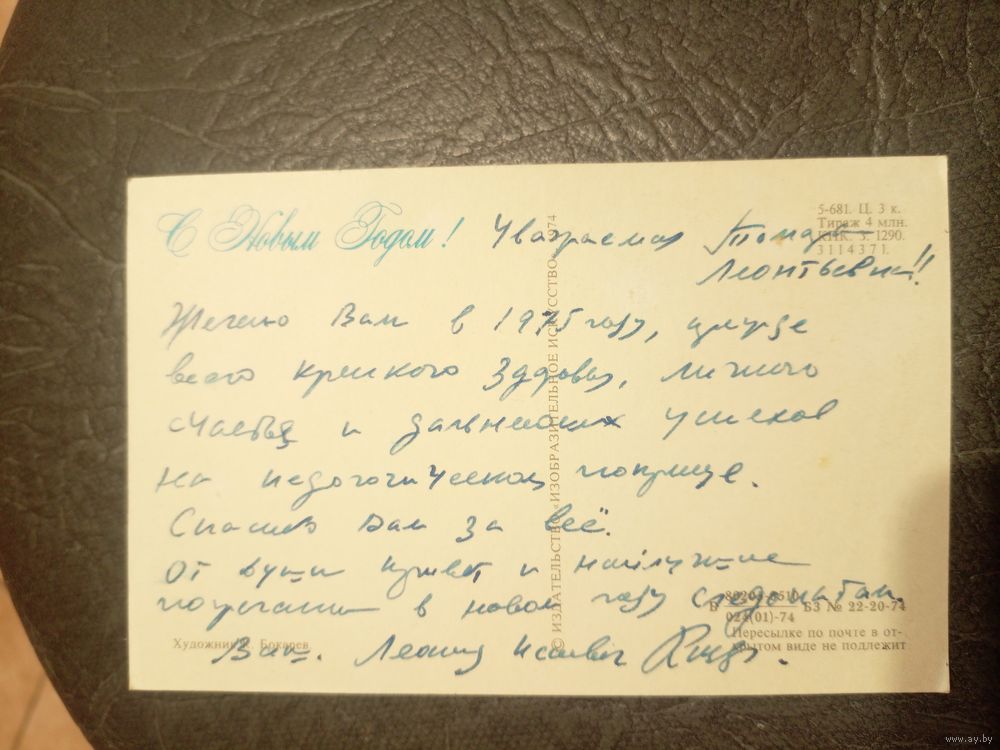 С Новым Годом! Уважаемая Тамара
Леонтьевна!!
Желаю Вам в 1975 году, прежде
всего крепкого здоровья, личного
счастья и дальнейших успехов
на педогогическом поприще.
Спасибо Вам за всё.
От души привет и наилучшие
пожелания в новом году
Ваш. Леонид
5-681. Ц. 3 к.
Тираж 4 млн.
З. 1290.
3114371.
© ИЗДАТЕЛЬСТВО «ИЗОБРАЗИТЕЛЬНОЕ ИСКУССТВО» 1974
БЗ № 22-20-74
024(01)-74
Пересылке по почте в от-
крытом виде не подлежит
Художник Бокарев
www.ay.by